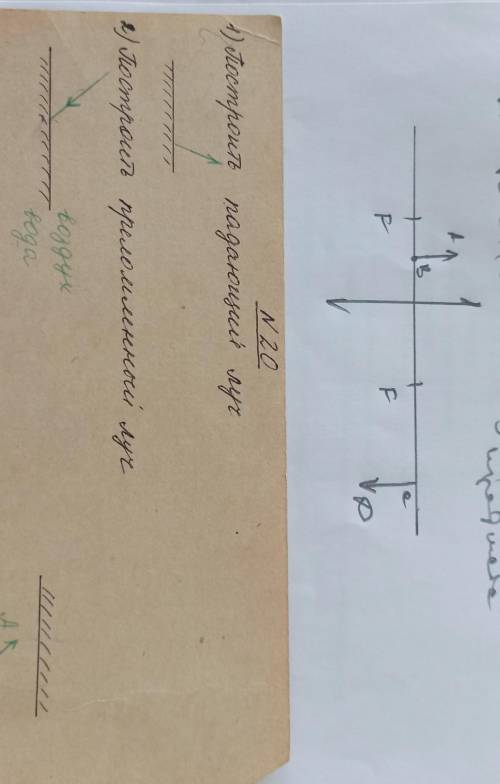 F
A
B
F
C
D
N 20
1) Построить падающий луч
2) Построить преломленный луч
воздух
вода
A